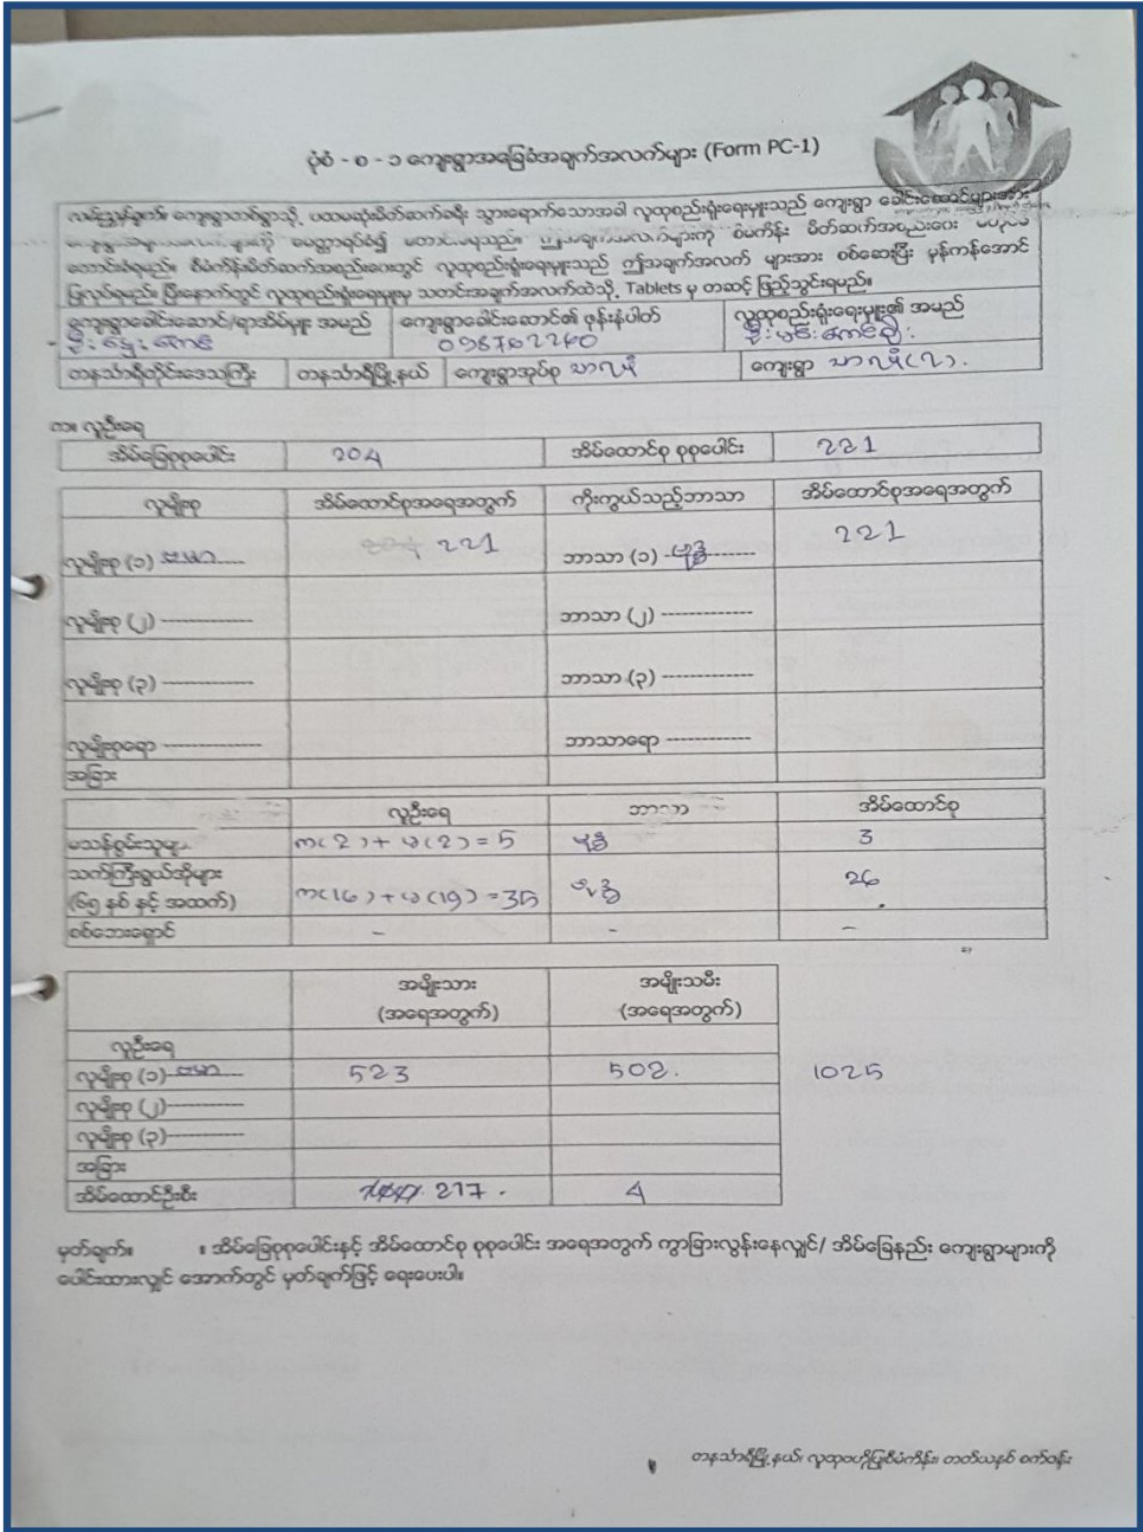 ပုံစံ - စ - ၁ ကျေးရွာအခြေခံအချက်အလက်များ (Form PC-1)
လမ်းညွှန်ချက်။ ကျေးရွာတစ်ရွာသို့ ပထမဆုံးမိတ်ဆက်ခရီး သွားရောက်သောအခါ လူထုစည်းရုံးရေးမှူးသည် ကျေးရွာ ခေါင်းဆောင်များအား
တောင်းခံရမည်။ စီမံကိန်းမိတ်ဆက်အစည်းဝေးတွင် လူထုစည်းရုံးရေးမှူးသည် ဤအချက်အလက် များအား စစ်ဆေးပြီး မှန်ကန်အောင်
ပြုလုပ်ရမည်။ ပြီးနောက်တွင် လူထုစည်းရုံးရေးမှူးမှ သတင်းအချက်အလက်ထဲသို့ Tablets မှ တဆင့် ဖြည့်သွင်းရမည်။
ကျေးရွာခေါင်းဆောင်/ရာအိမ်မှူး အမည် ကျေးရွာခေါင်းဆောင်၏ ဖုန်းနံပါတ် လူထုစည်းရုံးရေးမှူး၏ အမည်
တနင်္သာရီတိုင်းဒေသကြီး တနင်္သာရီမြို့နယ် ကျေးရွာအုပ်စု သာလုံ ကျေးရွာ သာလုံ(၁).
က။ လူဦးရေ
အိမ်ခြေစုစုပေါင်း 204 အိမ်ထောင်စု စုစုပေါင်း 221
လူမျိုးစု အိမ်ထောင်စုအရေအတွက် ကိုးကွယ်သည့်ဘာသာ အိမ်ထောင်စုအရေအတွက်
လူမျိုးစု (၁) ဗမာ 221 ဘာသာ (၁) ဗုဒ္ဓ 221
လူမျိုးစု (၂) ------------- ဘာသာ (၂) -------------
လူမျိုးစု (၃) ------------- ဘာသာ (၃) -------------
လူမျိုးစုရော -------------- ဘာသာရော ------------
အခြား
လူဦးရေ ဘာသာ အိမ်ထောင်စု
မသန်စွမ်းသူများ = 5 ဗုဒ္ဓ 3
သက်ကြီးရွယ်အိုများ
(၆၅ နှစ် နှင့် အထက်) က(16)+မ(19)=35 ဗုဒ္ဓ 26
စစ်ဘေးရှောင် - - -
အမျိုးသား အမျိုးသမီး
(အရေအတွက်) (အရေအတွက်)
လူဦးရေ
လူမျိုးစု (၁) ဗမာ 523 502. 1025
လူမျိုးစု (၂)-----------
လူမျိုးစု (၃)-----------
အခြား
အိမ်ထောင်ဦးစီး 217. 4
မှတ်ချက်။ ။ အိမ်ခြေစုစုပေါင်းနှင့် အိမ်ထောင်စု စုစုပေါင်း အရေအတွက် ကွာခြားလွန်းနေလျှင်/ အိမ်ခြေနည်း ကျေးရွာများကို
ပေါင်းထားလျှင် အောက်တွင် မှတ်ချက်ဖြင့် ရေးပေးပါ။
တနင်္သာရီမြို့နယ်၊ လူထုဗဟိုပြုစီမံကိန်း၊ တတိယနှစ် စက်ဝန်း